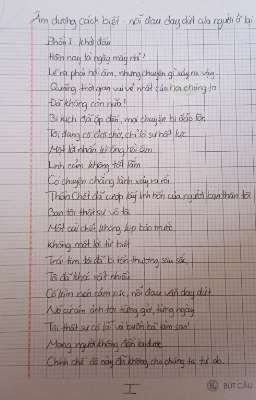 Âm dương cách biệt - nỗi đau day dứt của người ở lại
Phần 1 khởi đầu
Hôm nay là ngày mấy nhỉ?
Lẽ ra phải nói ẩm, nhưng chuyện gì xảy ra vậy
Quãng thời gian vui vẻ nhất của hai chúng ta
Đã không còn nữa!
Bi kịch đã ập đến, mọi chuyện bị đảo lộn
Tôi đang cố đợi chờ, chỉ là sự bất lực
Một lời nhắn không hồi âm
Linh cảm không tốt lắm
Có chuyện chẳng lành xảy ra rồi
Thần Chết đã cướp lấy linh hồn của người bạn thân tôi
Bạn tôi thật sự vô tội
Một cái chết không kịp báo trước
Không một lời từ biệt
Trái tim tôi đã bị tổn thương sâu sắc
Tôi đã khóc rất nhiều
Cố kìm nén cảm xúc, nỗi đau vẫn day dứt
Nó cứ ám ảnh tôi từng giờ, từng ngày
Tôi thật sự có lỗi và buồn bã làm sao!
Mạng người không đền lại được
Chính chế độ này đã không cho chúng ta tự do.
I
BÚT CẬU